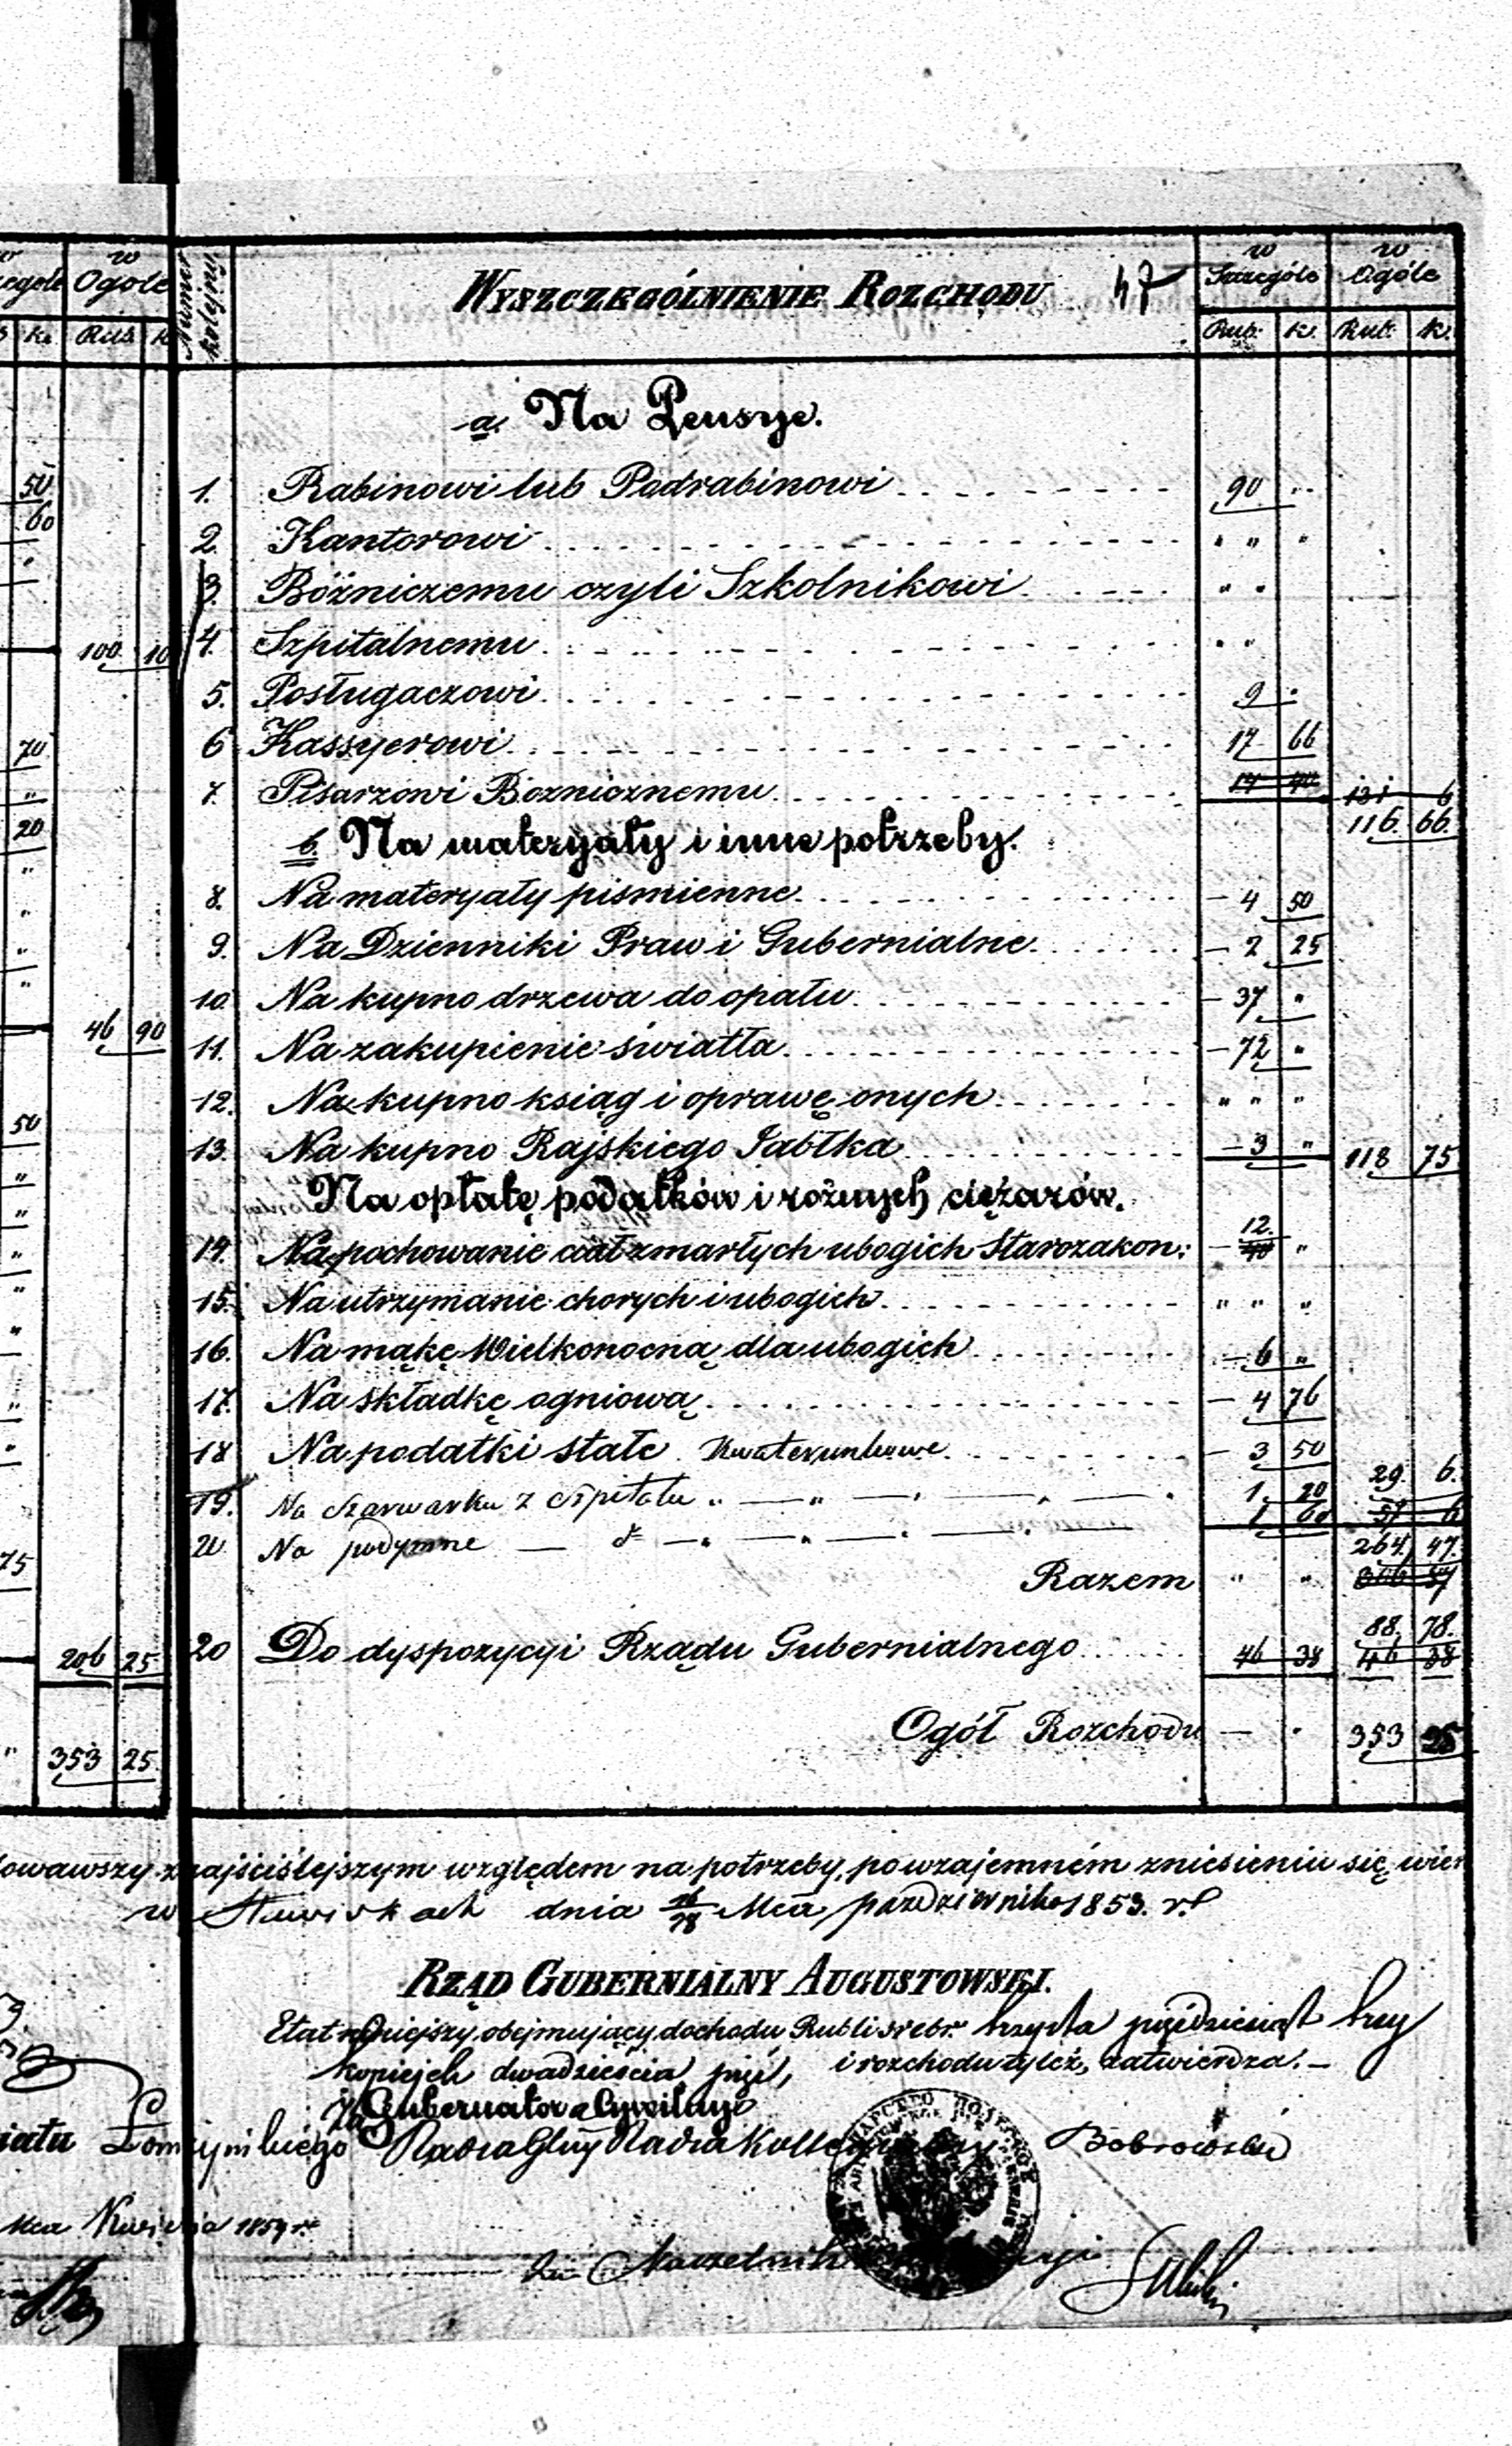 w Ogole
Rub. K.
Numer kolejny
WYSZCZEGÓLNIENIE ROZCHODU 47
w Szczególe w Ogóle
Rub. K. Rub. K.
a. Na Pensye.
50 1. Rabinowi lub Podrabinowi 90 "
60 2. Kantorowi " " "
" 3. Bóźniczemu czyli Szkolnikowi " "
100 10 4. Szpitalnemu " "
5. Posługaczowi 9 "
70 6 Kassyerowi 17 66
" 7. Pisarzowi Boznicznemu 14 40 131 6
116. 66.
20 b. Na materyały i inne potrzeby.
" 8. Na materyały piśmienne 4 50
" 9. Na Dzienniki Praw i Gubernialne 2 25
" 10. Na kupno drzewa do opału 37 "
46 90 11. Na zakupienie światła 72 "
12. Na kupno ksiąg i oprawę onych " " "
50 13. Na kupno Rajskiego Jabłka 3 " 118 75
Na opłatę podatków i rożnych ciężarów.
12.
14. Na pochowanie ciał zmarłych ubogich Starozakon: 40 "
15. Na utrzymanie chorych i ubogich " " "
16. Na mąkę Wielkonocną dla ubogich 6 "
17. Na składkę ogniową 4 76
18 Na podatki stałe Kwaterunkowe 3 50
29. 6.
19. Na Szarwarku z Szpitalu 1. 20 57 6
20. Na podymne 1 60
264. 47.
75 Razem " " 306 87
88. 78.
206 25 20 Do dyspozycyi Rządu Gubernialnego 46 38 46 38
" 353 25. Ogół Rozchodu 353 25
najściślejszym względem na potrzeby, po wzajemném zniesieniu się, wier
w Stawiskach dnia 16/28 Mca października 1853. r.
RZĄD GUBERNIALNY AUGUSTOWSKI.
Etat niniejszy, obejmujący dochodu Rubli srebr. trzysta pięćdziesiąt trzy
kopiejek dwadzieścia pięć, i rozchodu tyleż, zatwierdza.
Gubernator Cywilny
iatu Łomżyńskiego Radca Bobrowski
Mca Kwietnia 1854 r.
Naczelnik